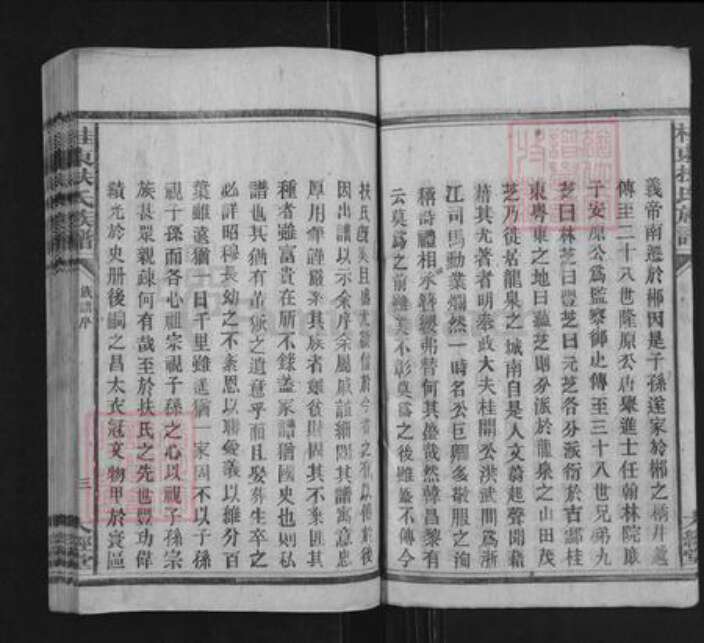 桂東扶氏族譜
義帝南遷於郴因是子孫遂家於郴之橘井越
傳至二十八世隆原公唐舉進士任翰林院
子安原公爲監察御史傳至三十八世兄弟九
芝曰林芝曰豐芝曰元芝各分派衍於吉酃桂
東粤東之地曰 芝則分派於龍泉之山田茂
芝乃徙居龍泉之城南自是人文蔚起聲聞藉
藉其尤著者明奉政大夫桂開公洪武間爲浙
江司馬勳業爛然一時名公巨卿多敬服之洵
稱詩禮相承簪纓弗替何其盛哉然韓昌黎有
云莫爲之前雖美不彰莫爲之後雖盛不傳今
大經堂
扶氏
因出譜以示余序余屬 誼細閱其譜寓意忠
厚用筆謹嚴系其族者雖貧賤
種者雖富貴在所不錄蓋家譜猶國史也則私
譜也其猶有 之遺意乎而且娶葬生卒之
必詳昭穆長幼之不紊恩以聯愛義以維分百
葉雖遠猶一日千里雖遙猶一家因不以子孫
視子孫而各心祖宗視子孫之心以視子孫宗
族甚眾親疎何有哉至於扶氏之先世豐功偉
績光於史册後嗣之昌大衣冠文物甲於寰區
桂東扶氏族譜
族譜序
三
大經堂